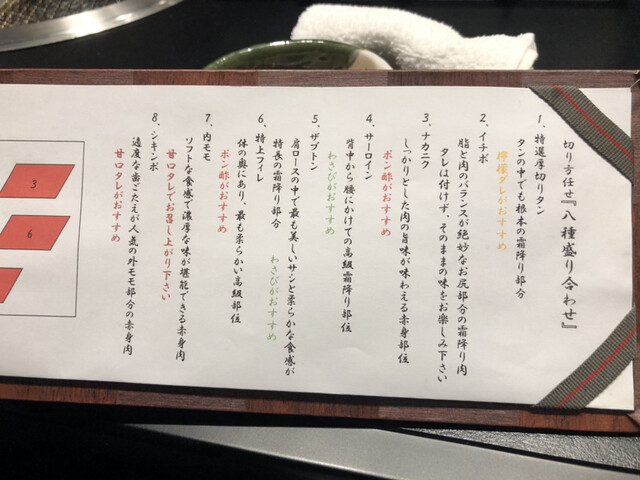 切り方任せ『八種盛り合わせ』
1、特選厚切りタン
タンの中でも根本の霜降り部分
檸檬ダレがおすすめ
2、イチボ
脂と肉のバランスが絶妙なお尻部分の霜降り肉
タレは付けず、そのままの味をお楽しみ下さい
3、ナカニク
しっかりとした肉の旨味が味わえる赤身部位
ポン酢がおすすめ
4、サーロイン
背中から腰にかけての高級霜降り部位
わさびがおすすめ
5、ザブトン
肩ロースの中で最も美しいサシと柔らかな食感が
特長の霜降り部分 わさびがおすすめ
6、特上フィレ
体の奥にあり、最も柔らかい高級部位
ポン酢がおすすめ
7、内モモ
ソフトな食感で濃厚な味が堪能できる赤身肉
甘口タレでお召し上がり下さい
8、シキンボ
適度な歯ごたえが人気の外モモ部分の赤身肉
甘口タレがおすすめ
3
6